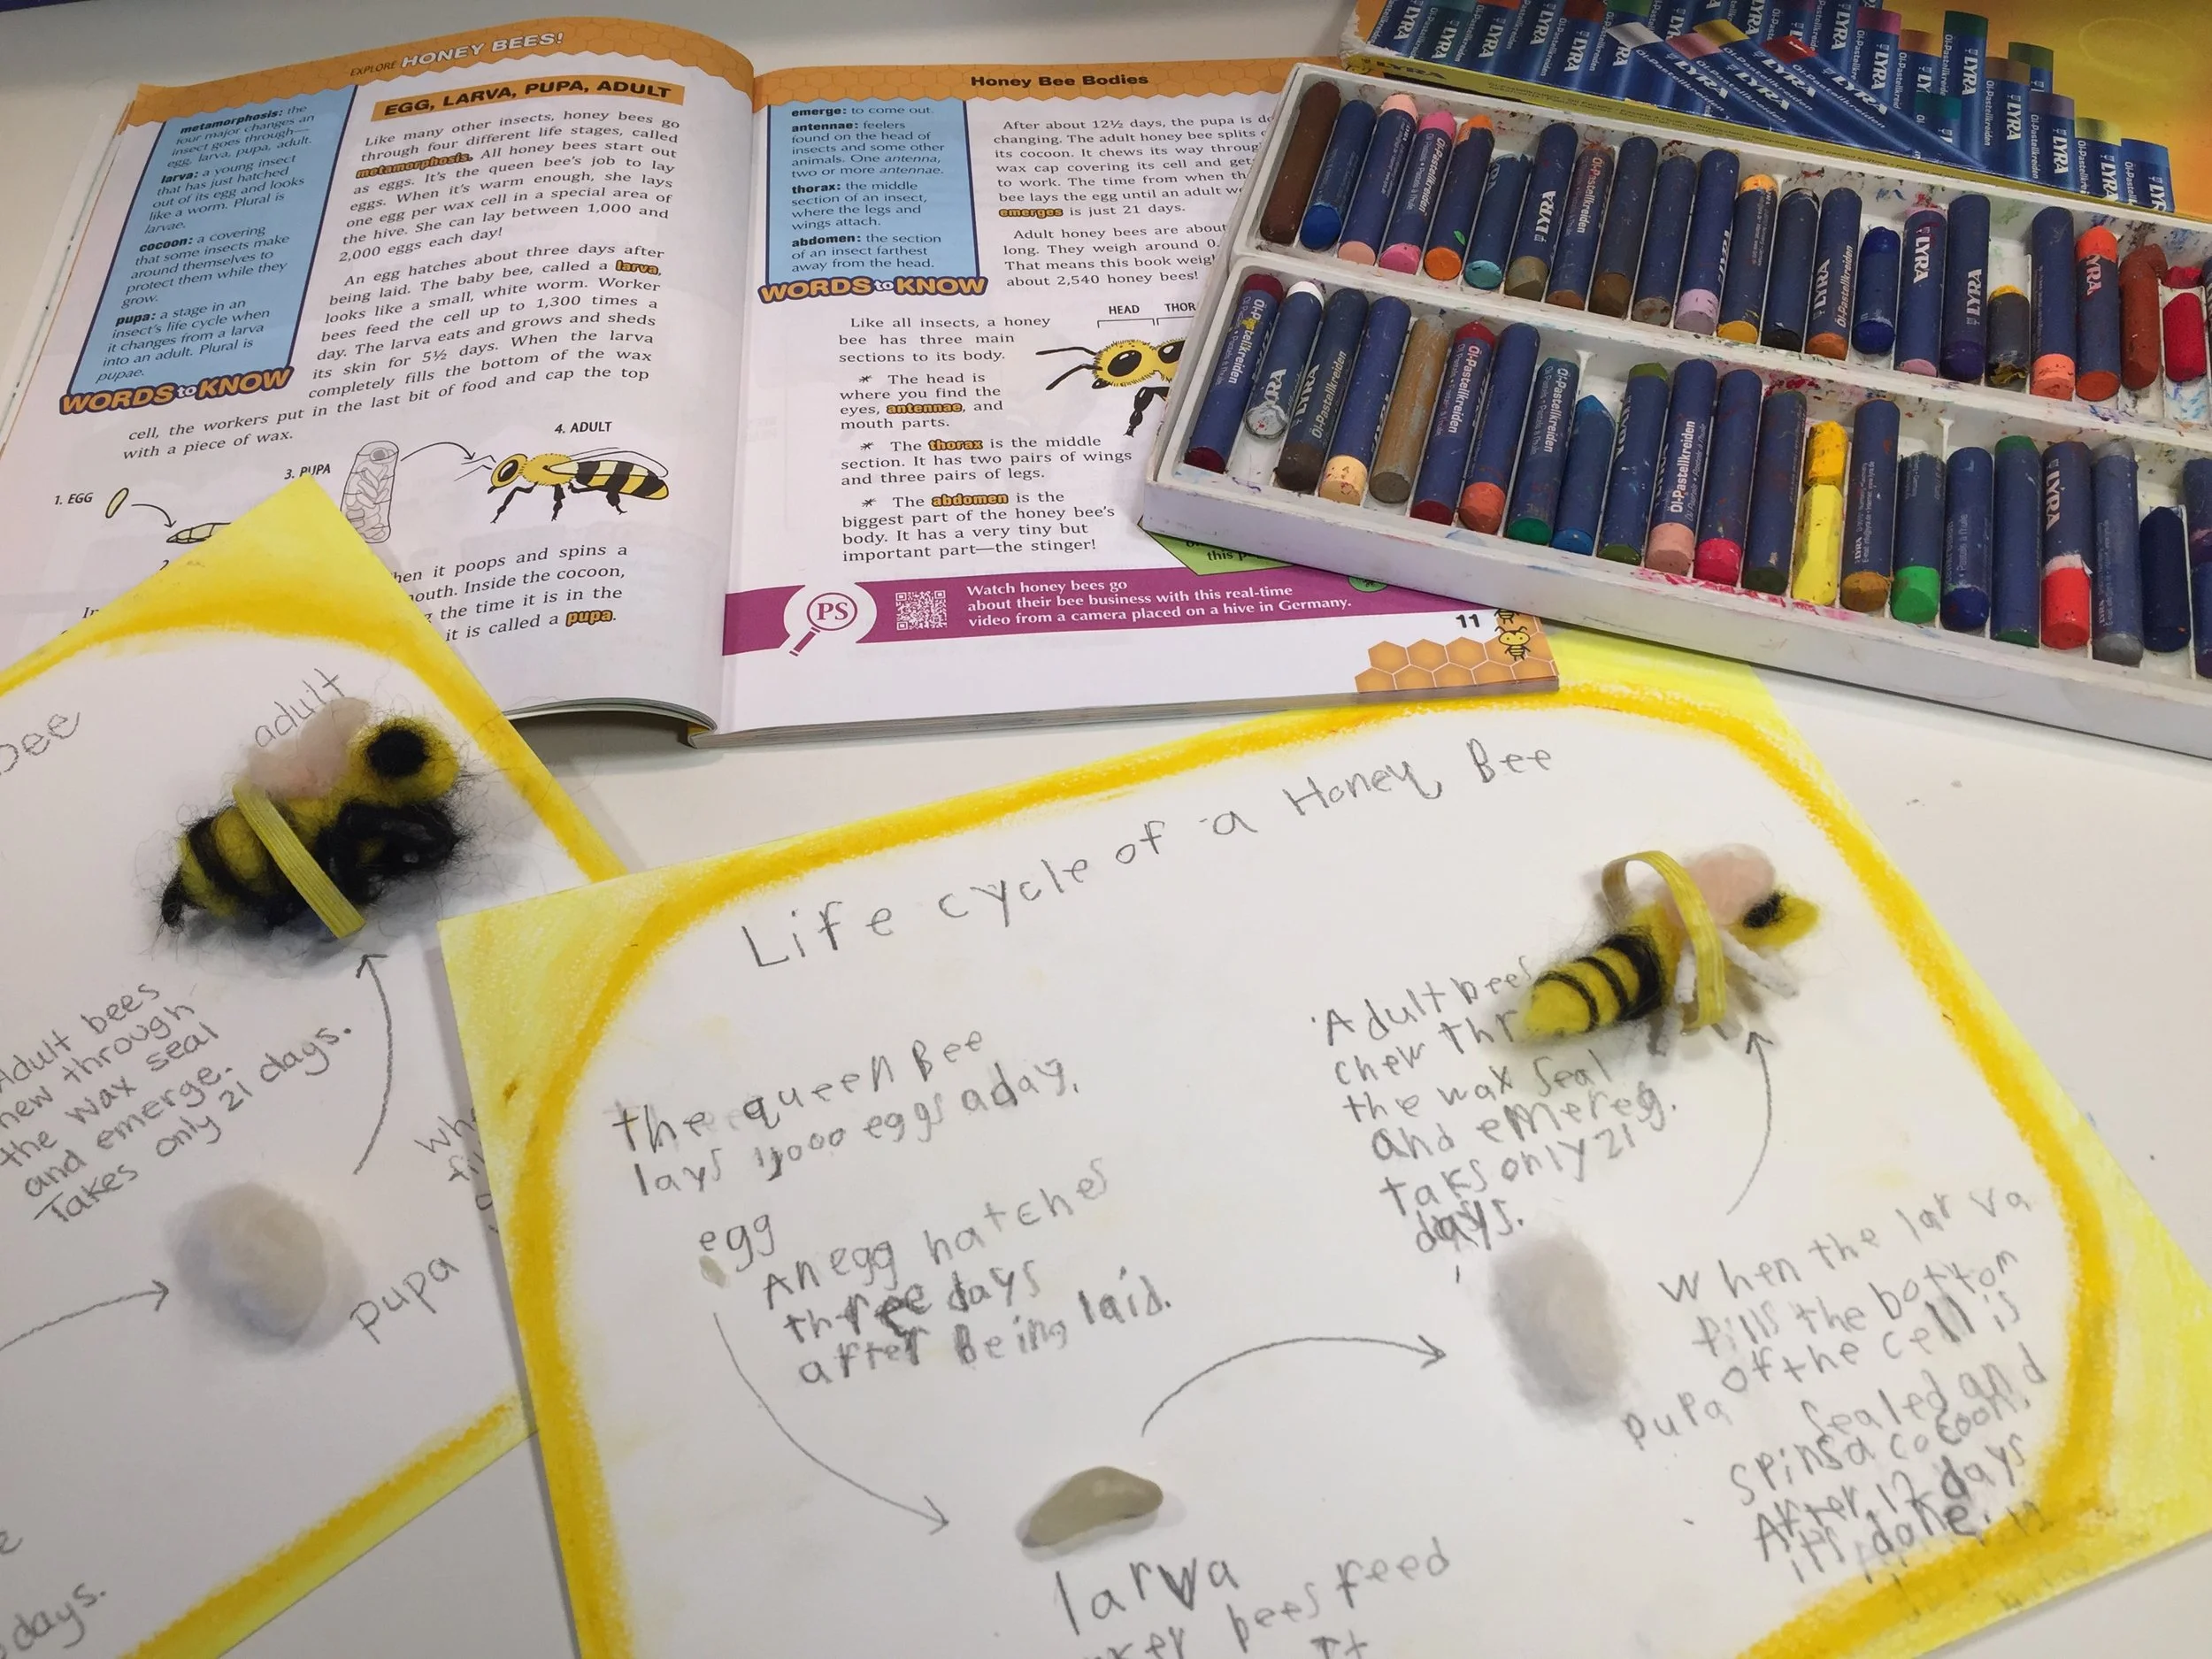 EXPLORE HONEY BEES!
metamorphosis: the
four major changes an
insect goes through—
egg, larva, pupa, adult.
larva: a young insect
that has just hatched
out of its egg and looks
like a worm. Plural is
larvae.
cocoon: a covering
that some insects make
around themselves to
protect them while they
grow.
pupa: a stage in an
insect's life cycle when
it changes from a larva
into an adult. Plural is
pupae.
WORDS to KNOW
EGG, LARVA, PUPA, ADULT
Like many other insects, honey bees go
through four different life stages, called
metamorphosis. All honey bees start out
as eggs. It's the queen bee's job to lay
eggs. When it's warm enough, she lays
one egg per wax cell in a special area of
the hive. She can lay between 1,000 and
2,000 eggs each day!
An egg hatches about three days after
being laid. The baby bee, called a larva,
looks like a small, white worm. Worker
bees feed the cell up to 1,300 times a
day. The larva eats and grows and sheds
its skin for 5½ days. When the larva
completely fills the bottom of the wax
cell, the workers put in the last bit of food and cap the top
with a piece of wax.
1. EGG
3. PUPA
4. ADULT
hen it poops and spins a
outh. Inside the cocoon,
the time it is in the
it is called a pupa.
Honey Bee Bodies
emerge: to come out.
antennae: feelers
found on the head of
insects and some other
animals. One antenna,
two or more antennae.
thorax: the middle
section of an insect,
where the legs and
wings attach.
abdomen: the section
of an insect farthest
away from the head.
WORDS to KNOW
After about 12½ days, the pupa is do
changing. The adult honey bee splits
its cocoon. It chews its way throug
wax cap covering its cell and get
to work. The time from when th
bee lays the egg until an adult w
emerges is just 21 days.
Adult honey bees are about
long. They weigh around 0.
That means this book weig
about 2,540 honey bees!
HEAD THOR
Like all insects, a honey
bee has three main
sections to its body.
* The head is
where you find the
eyes, antennae, and
mouth parts.
* The thorax is the middle
section. It has two pairs of wings
and three pairs of legs.
* The abdomen is the
biggest part of the honey bee's
body. It has a very tiny but
important part—the stinger!
this p
PS
Watch honey bees go
about their bee business with this real-time
video from a camera placed on a hive in Germany.
11
LYRA
Öl-Pastellkreiden
Bee
adult
Adult bees
hew through
the wax seal
and emerge.
Takes only 21 days.
pupa
days.
Life cycle of a Honey Bee
the queen Bee
lays 1,000 eggs a day.
egg
An egg hatches
three days
after Being laid.
larva
bees feed
It
Adult bees
chew thr
the wax seal
and emereg.
taks only 21
days.
pupa
When the larva
fills the bottom
of the cell is
sealed and
spins a cocoon.
After 12 days
it's done.